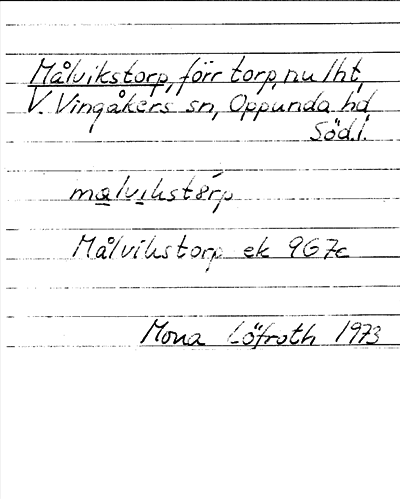 Målvikstorp, förr torp, nu lht,
V. Vingåkers sn, Oppunda hd
Södi.
målvikstorp
Målvikstorp ek 9G7c
Mona Löfroth 1973